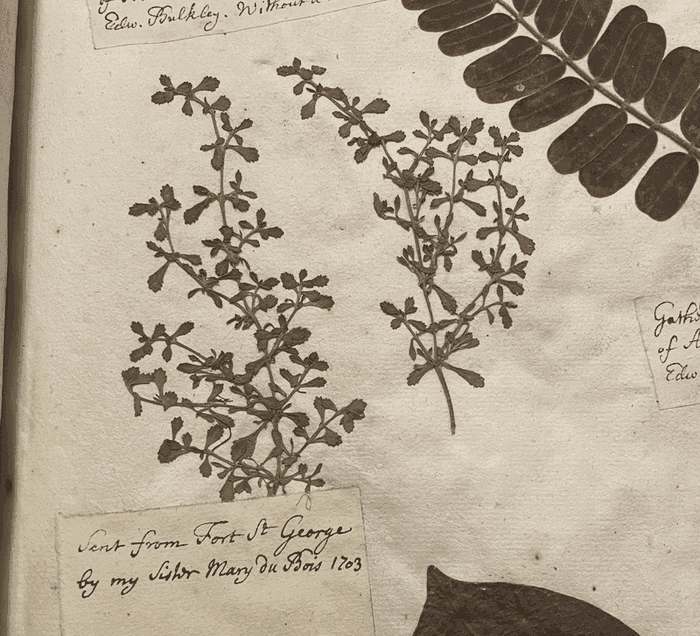 of
Edw. Bulkley. Without
Sent from Fort St George
by my Sister Mary du Bois 1703
Gathe
of A
Edw